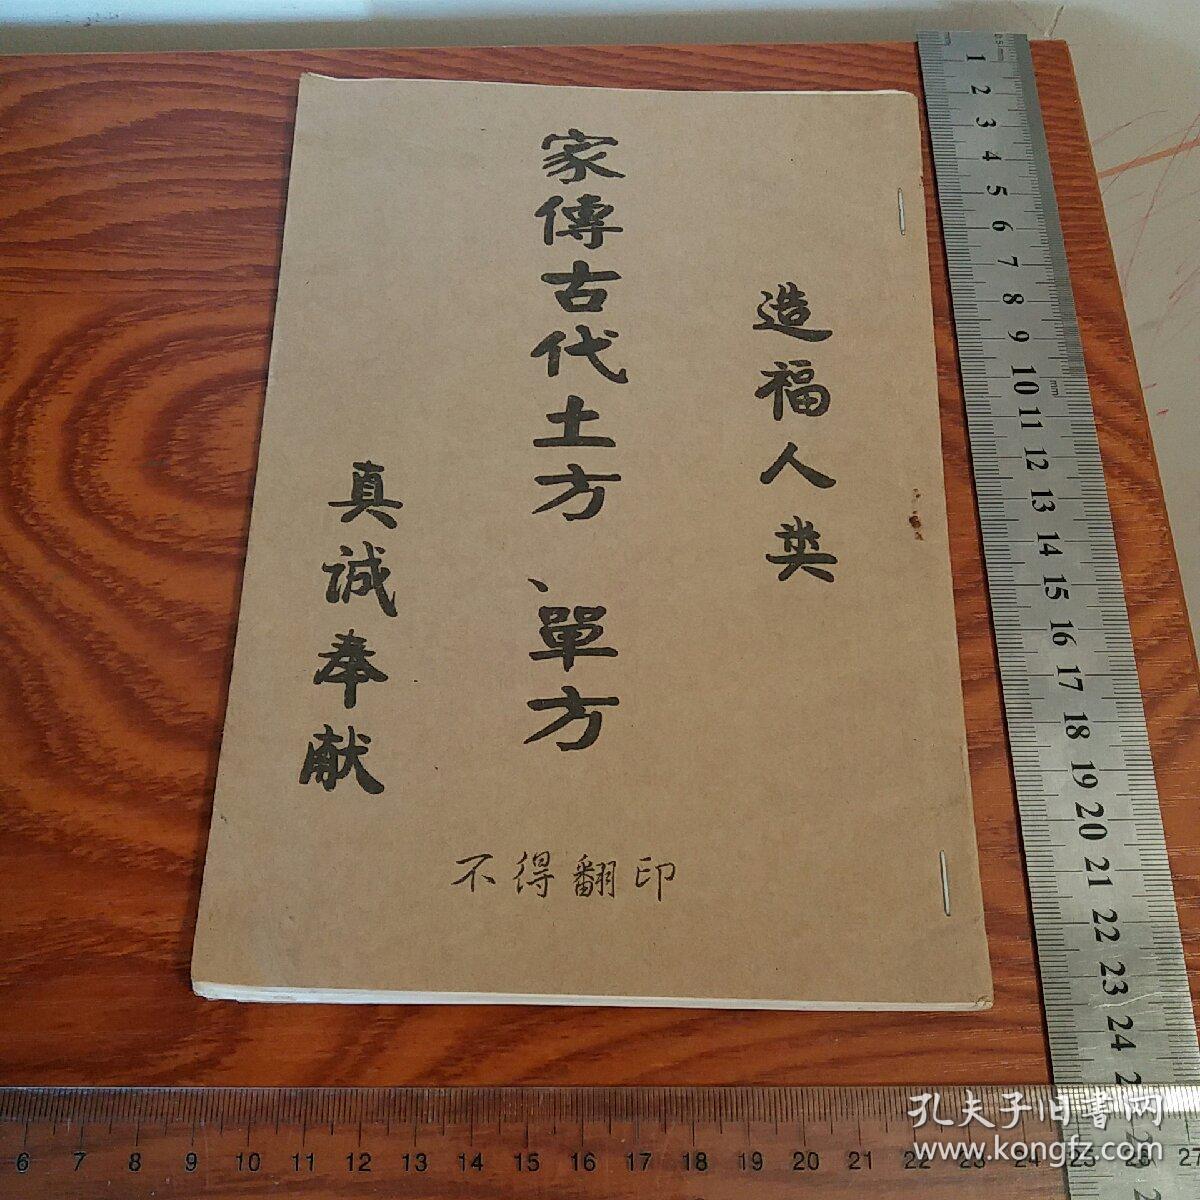 造福人类
家傳古代土方、單方
真诚奉献
不得翻印
0.5mm
1 2 3 4 5 6 7 8 9 10 mm 11 12 13 14 15 16 17 18 19 20 21 22 23 24
6 7 8 9 10 11 12 13 14 15 16 17 18 19 20 21 22 23 24 25 26 27
孔夫子旧书网
www.kongfz.com